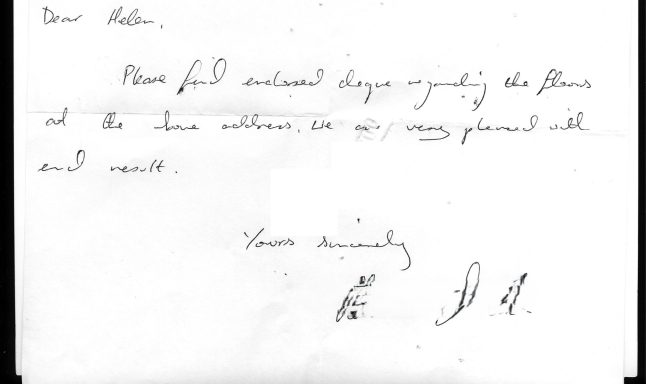 Dear Helen,
Please find enclosed cheque regarding the floors
at the above address. We are very pleased with
end result.
Yours sincerely